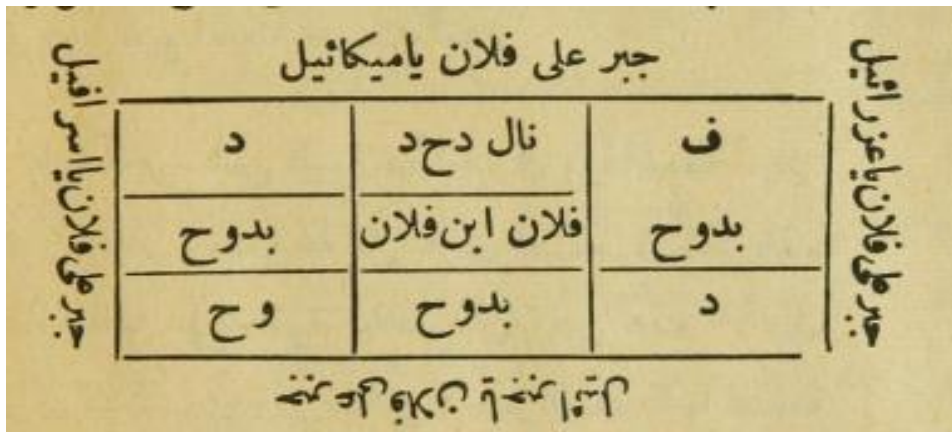 جبر على فلان ياميكائيل
جبر على فلان ياعزرائيل
ف نال دح د د
بدوح فلان ابن فلان بدوح
د بدوح وح
جبر على فلان يااسرافيل
جبر على فلان ياجبرائيل